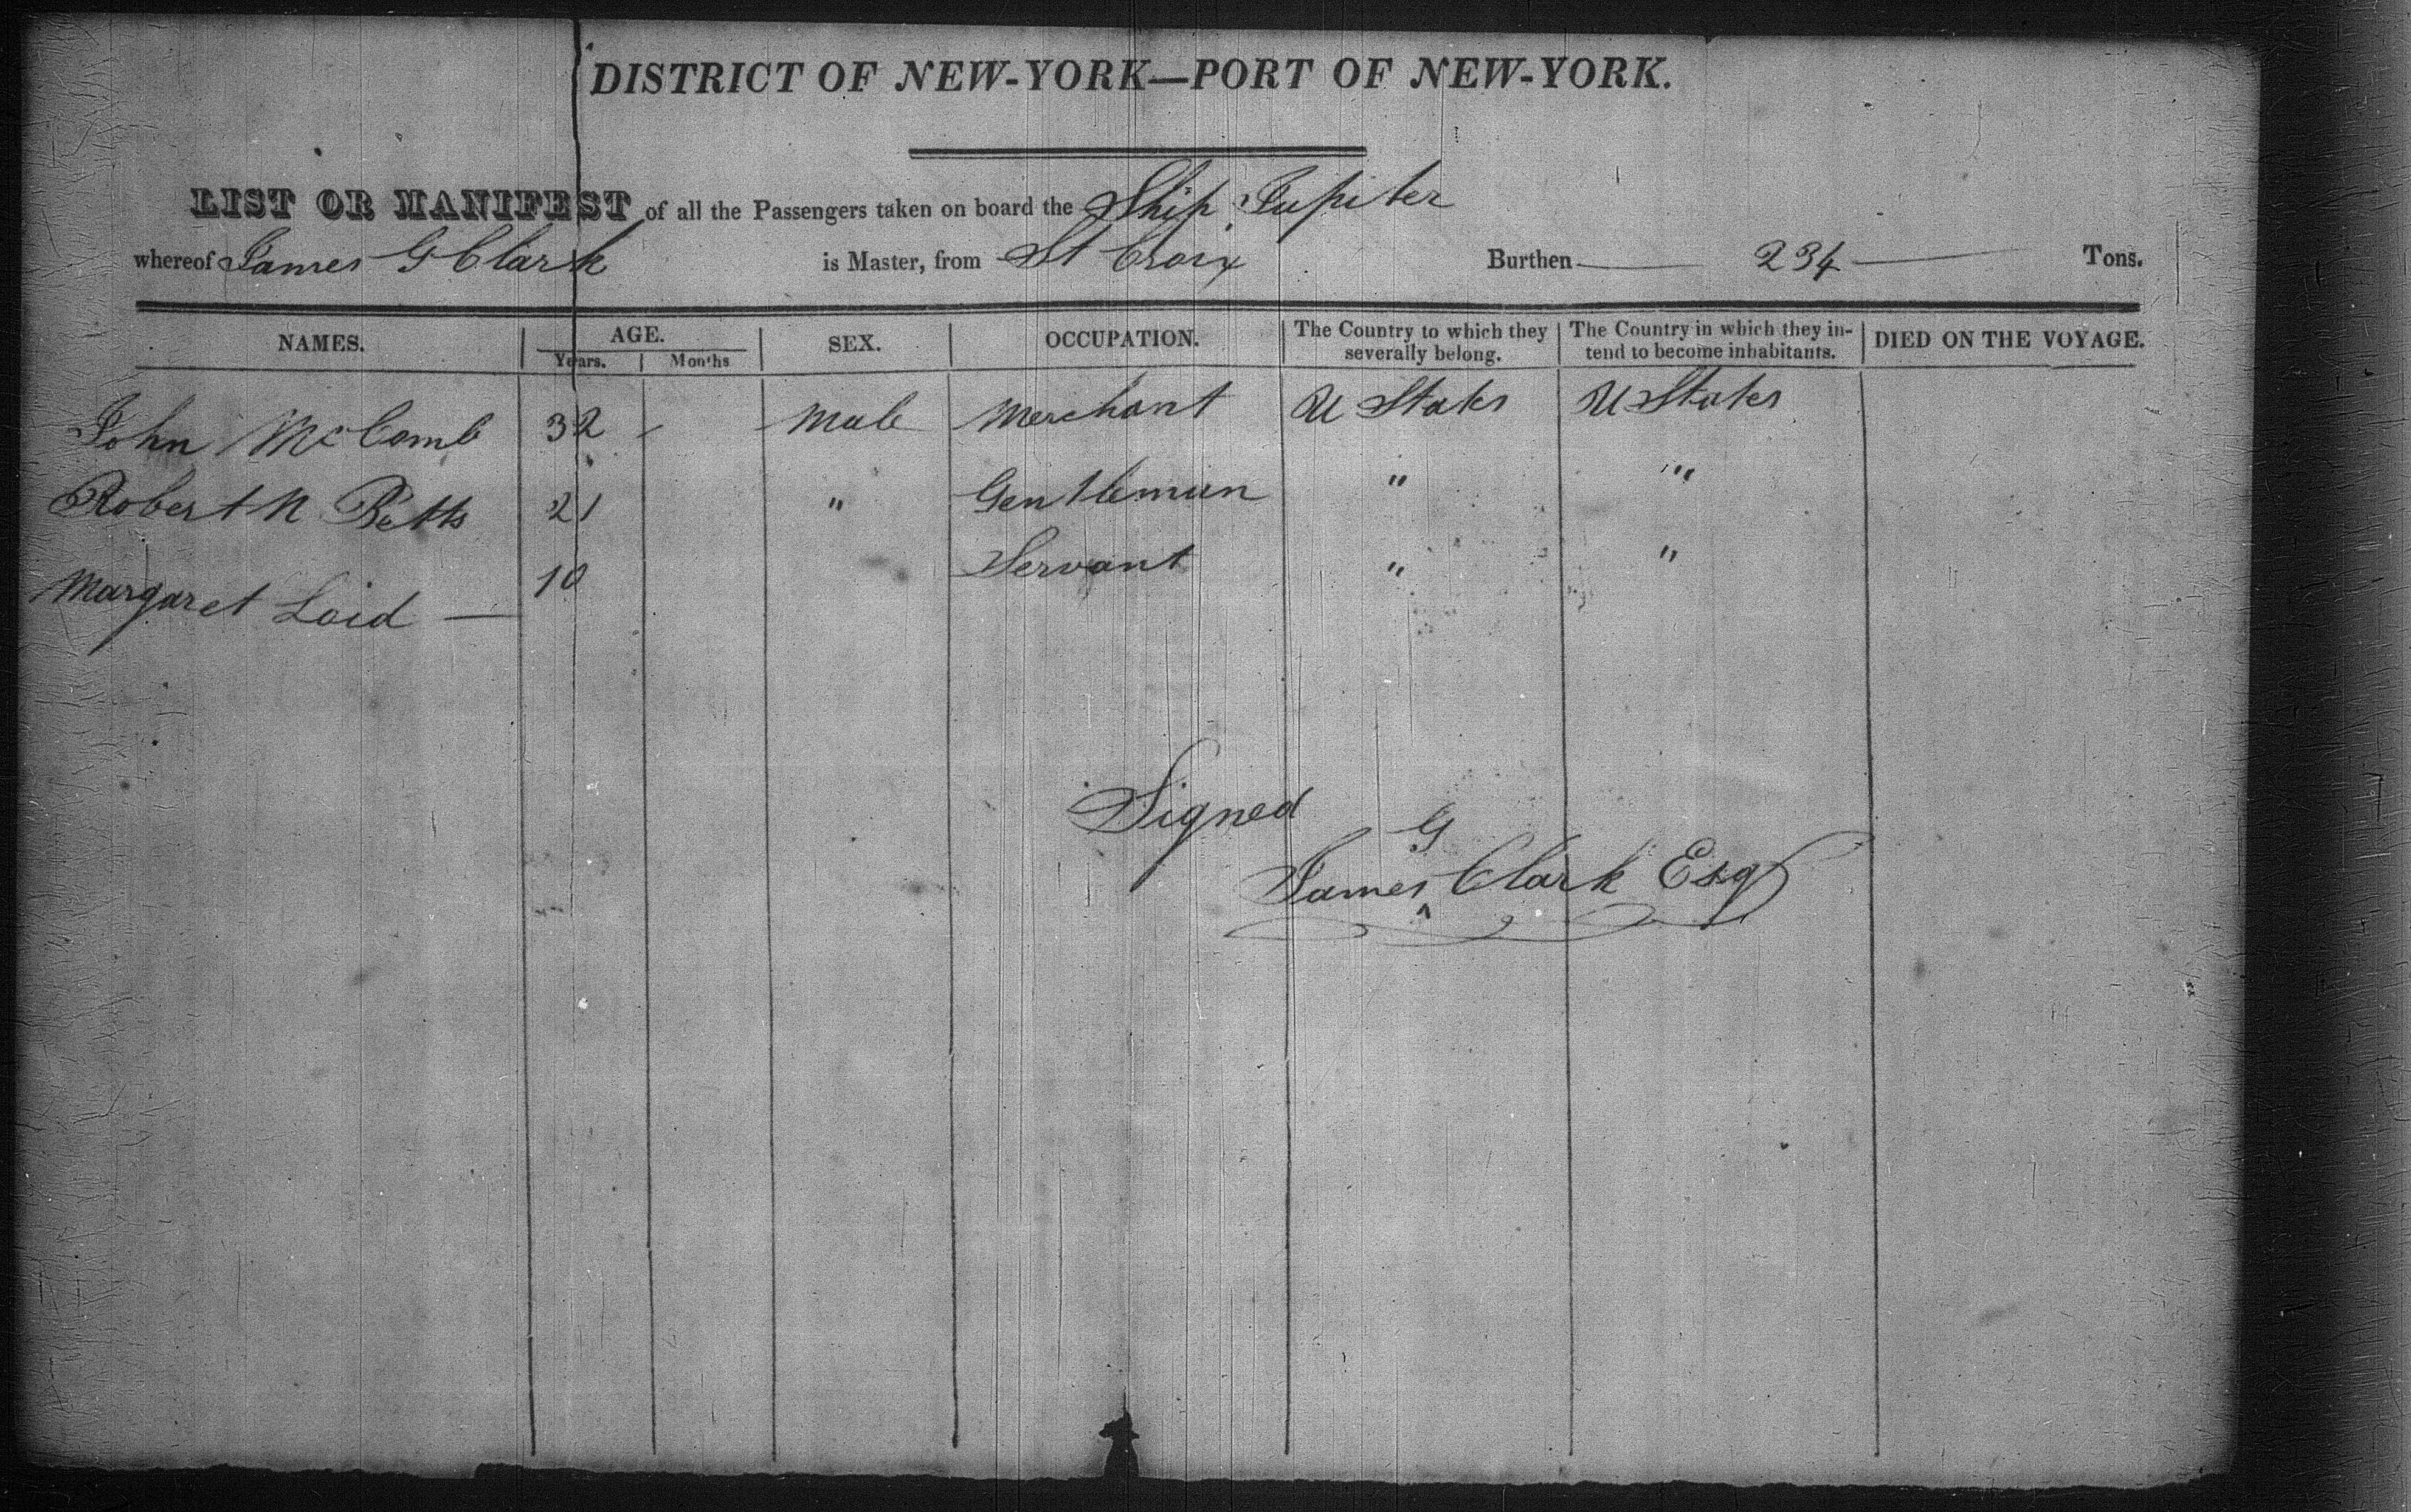 DISTRICT OF NEW-YORK—PORT OF NEW-YORK.
LIST OR MANIFEST of all the Passengers taken on board the Ship Jupiter
whereof James G Clark is Master, from St Croix Burthen 234 Tons.
NAMES. AGE. SEX. OCCUPATION. The Country to which they severally belong. The Country in which they intend to become inhabitants. DIED ON THE VOYAGE.
Years. Months
John McComb 32 Male Merchant U States U States
Robert N Betts 21 " Gentleman " "
Margaret Loid — 10 Servant " "
Signed
James G Clark Esq